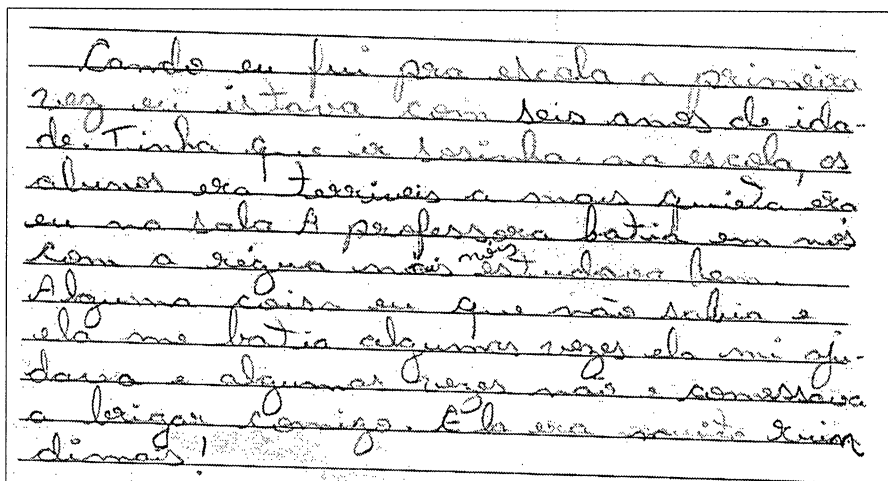 Cando eu fui pra escola a primeira
vez eu istava com seis anos de ida-
de. Tinha que ir sosinha na escola, os
alunos era terriveis a mais quieta era
eu na sala A professora batia em nós
com a régua mais nóis estudava bem.
Alguma coisa eu que não sabia e
ela me batia algumas vezes ela mi aju-
dava e algumas vezes não e comessava
a brigar comigo. Ela era muito ruim
dimais!